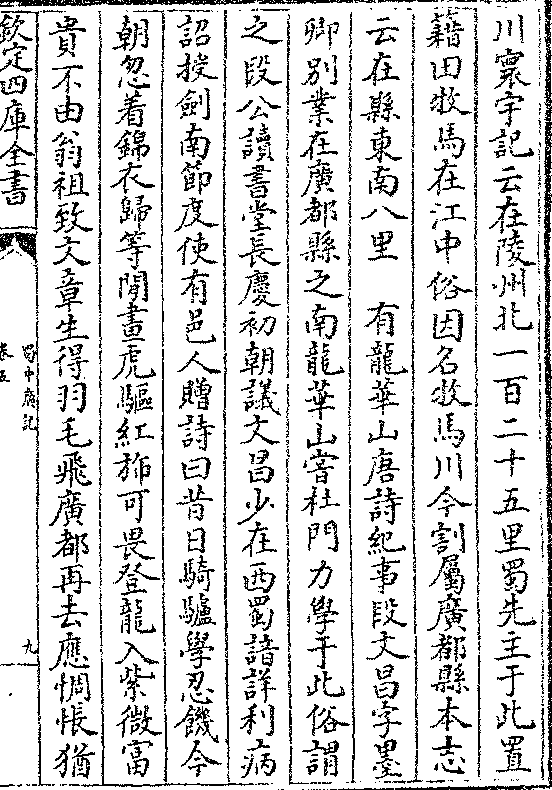 川寰宇記云在陵州北一百二十五里蜀先主于此置
藉田牧馬在江中俗因名牧馬川今割屬廣都縣本志
云在縣東南八里　有龍華山唐詩紀事段文昌字墨
卿別業在廣都縣之南龍華山嘗杜門力學于此俗謂
之段公讀書堂長慶初朝議文昌少在西蜀諳詳利病
詔授劍南節度使有邑人贈詩曰昔日騎驢學忍饑今
朝忽着錦衣歸等閒畫虎驅紅斾可畏登龍入紫微富
貴不由翁祖致文章生得羽毛飛廣都再去應惆悵猶
欽定四庫全書
蜀中廣記
卷五
九